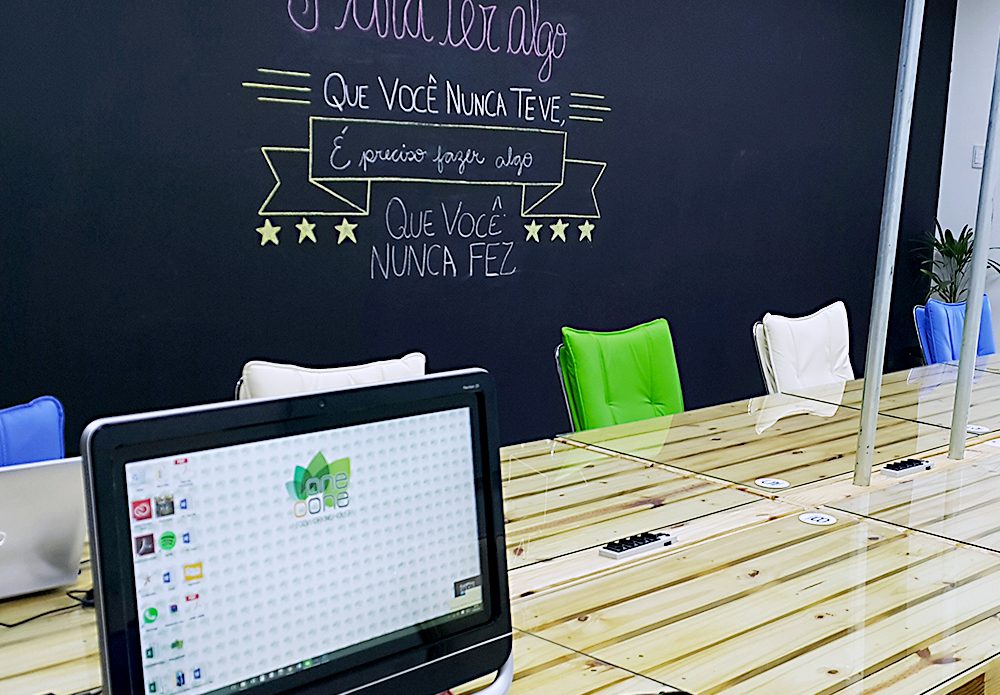 Para ter algo
QUE VOCÊ NUNCA TEVE,
É preciso fazer algo
QUE VOCÊ
NUNCA FEZ
one
done